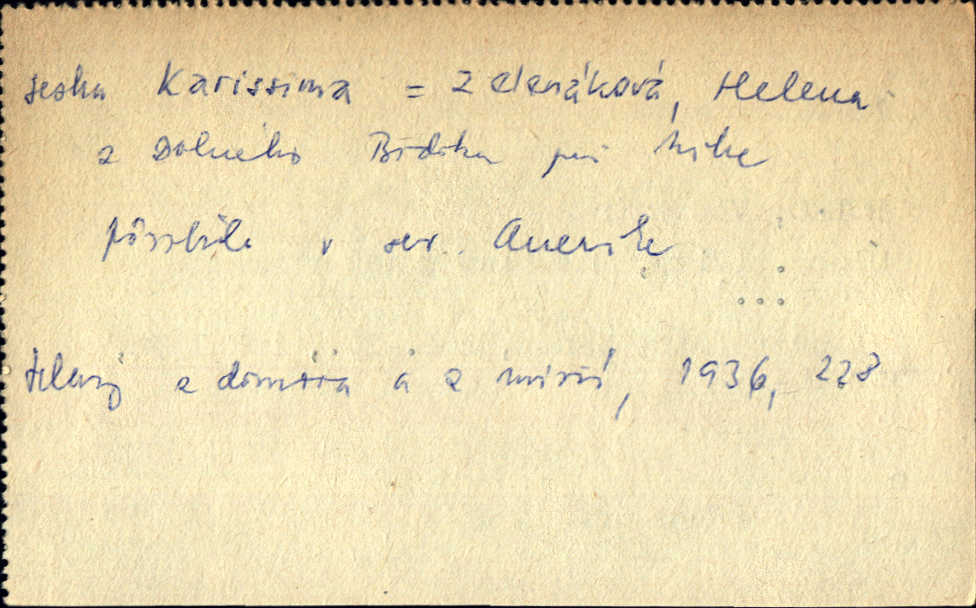 sestra Karissima = Zelenáková, Helena
z Dolného Bŕ pri
pôsobila v sev. Amerike
...
Hlasy z domova a z misií, 1936, 228